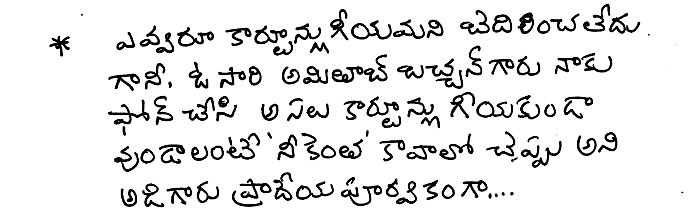 * ఎవ్వరూ కార్టూన్లు గీయమని బెదిరించలేదు.
గానీ, ఓ సారి అమితాబ్ బచ్చన్ గారు నాకు
ఫోన్ చేసి అసలు కార్టూన్లు గీయకుండా
వుండాలంటే 'నీకెంత' కావాలో చెప్పు అని
అడిగారు ప్రాదేయపూర్వకంగా....